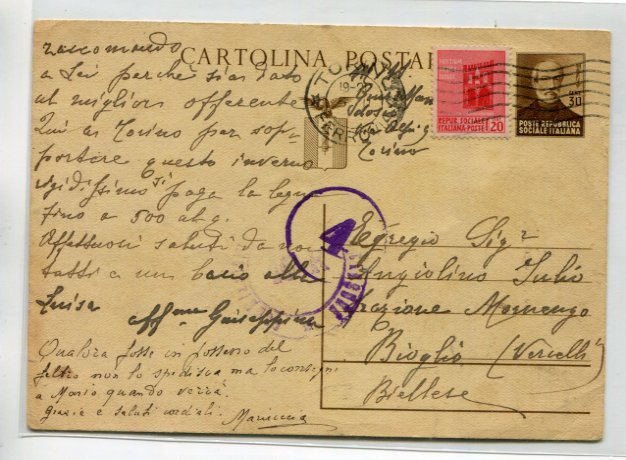 raccomando
a Lei perché sia dato
al miglior offerente
Qui a Torino per sop-
portare questo inverno
rigidissimo si paga la legna
fino a 500 al q.
Affettuosi saluti da noi
tutti a un bacio alla
Luisa
Aff.ma Guiseppina
Qualora fosse in possesso del
feltro non lo spedisca ma lo consegni
a Mario quando verrà.
Grazie e saluti cordiali. Mariuccia
CARTOLINA POSTALE
TORINO
19-
FERROVIA
Torino
REPUB. SOCIALE
ITALIANA-POSTE
20
CENT.
30
POSTE REPUBBLICA
SOCIALE ITALIANA
4
Egregio Sigr
Angiolino Julio
Frazione Mornengo
Bioglio (Vercelli)
Biellese